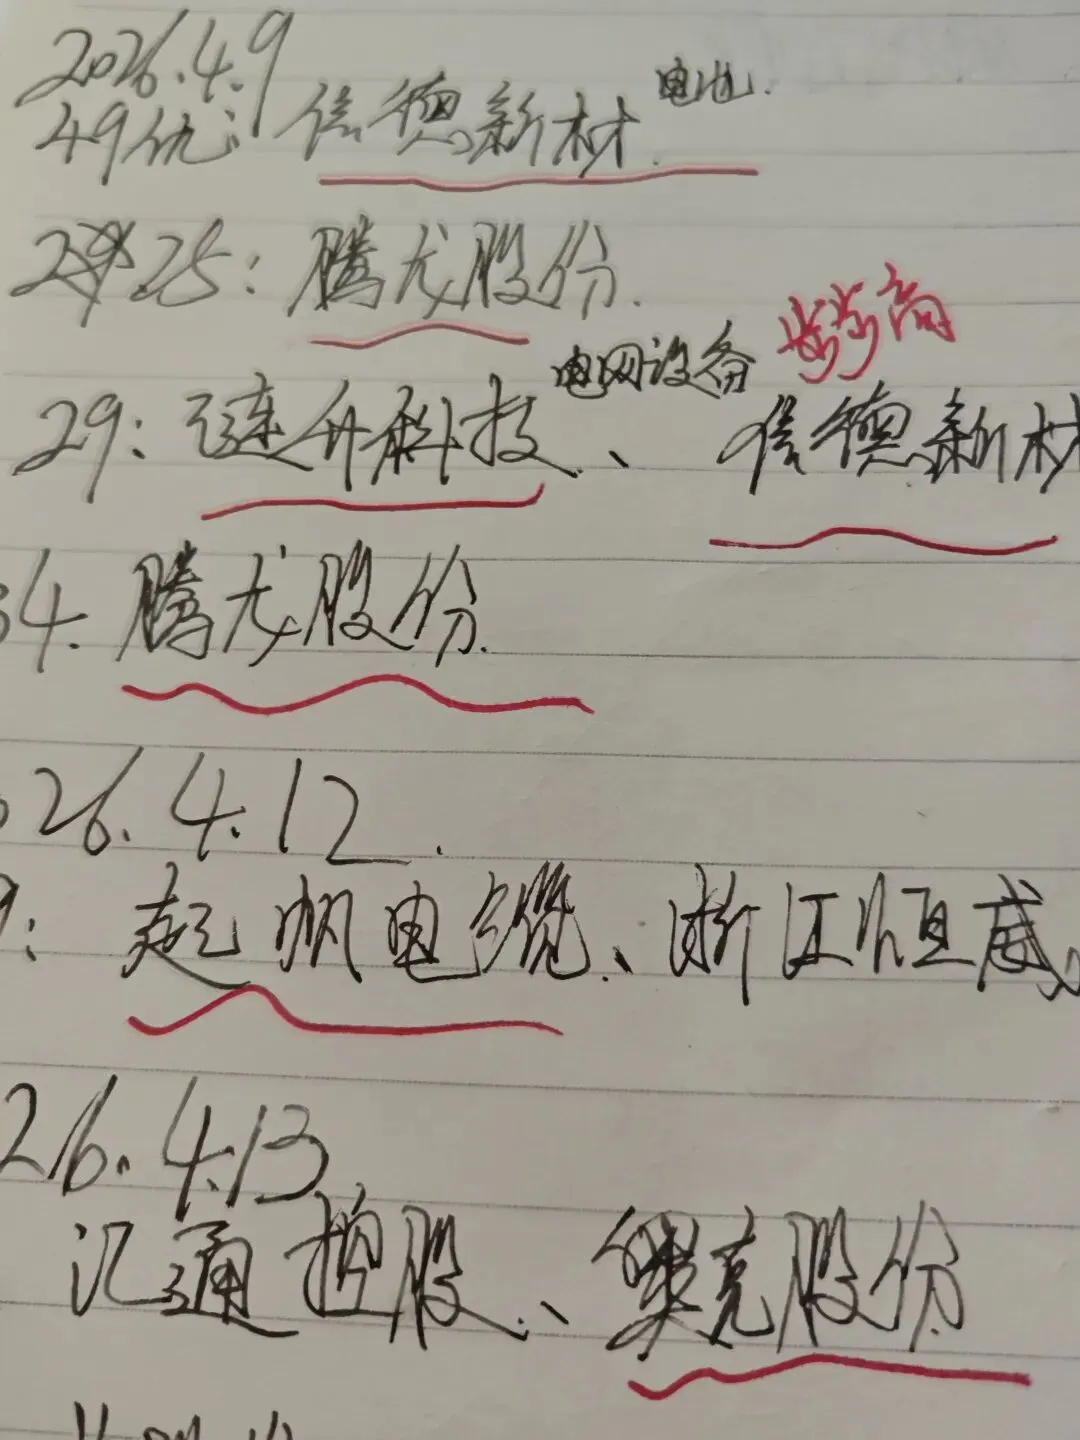 2026.4.9
49优: 信德新材. 电池.
25: 腾龙股份.
29: 琏升科技、电网设备 信德新材
34. 腾龙股份.
26.4.12.
9: 起帆电缆、浙江恒威、
26.4.13
汇通控股、奥克股份